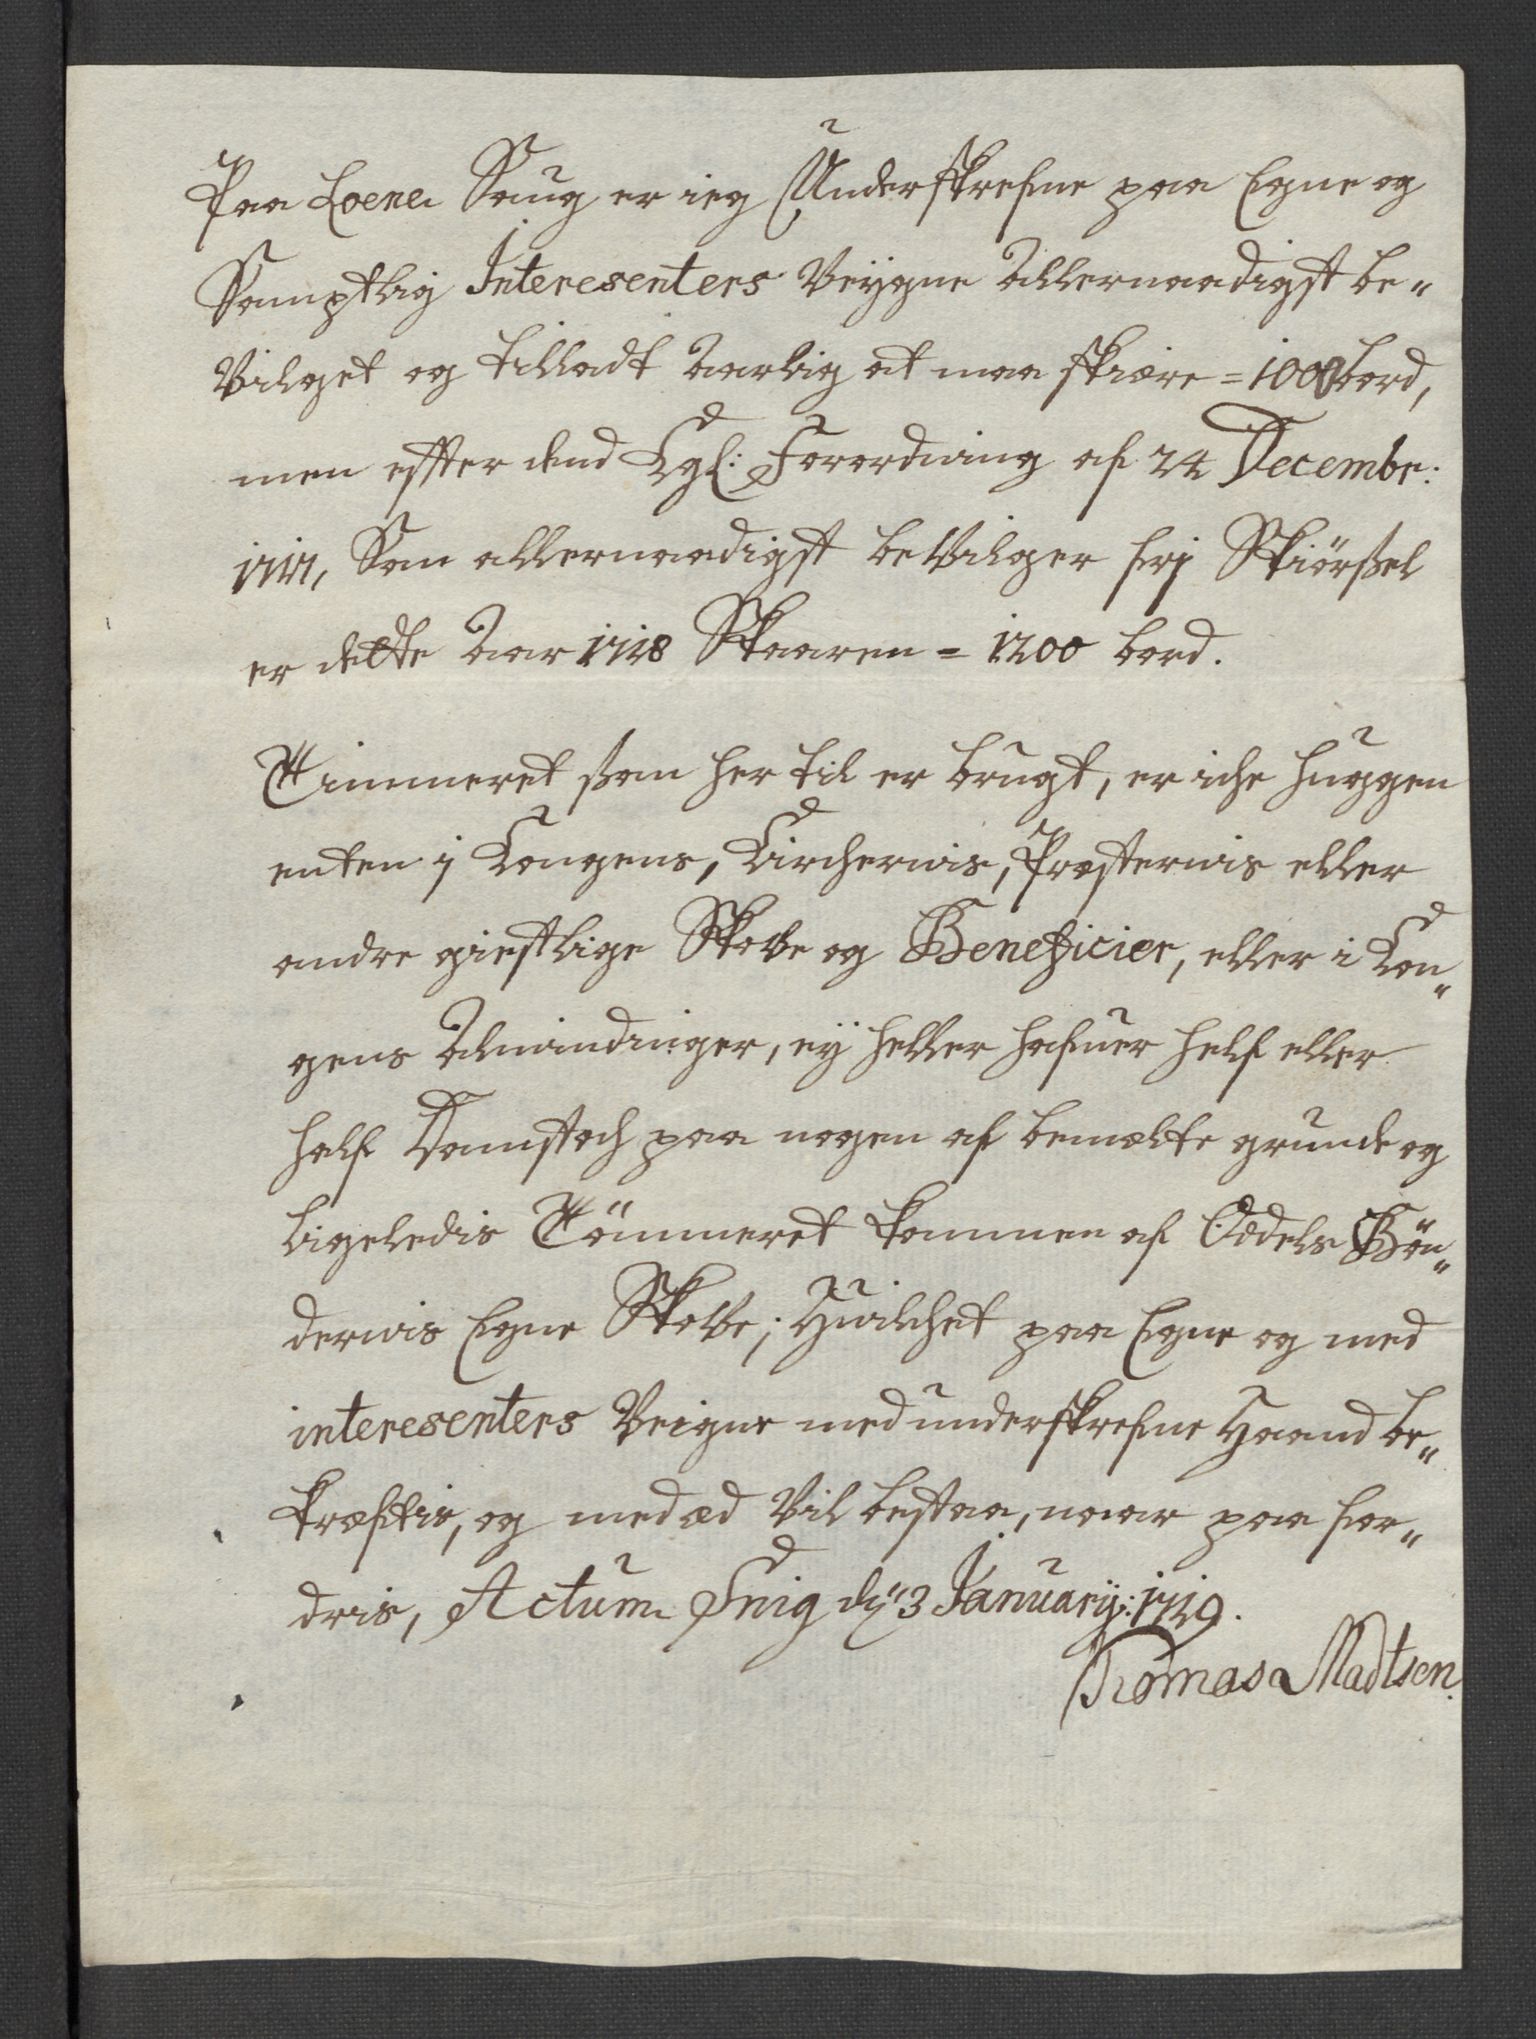 Paa Loene Saug er ieg Underskrefne paa Egne og
Samptlig Interesenters Veÿgne Allernaadigst be„
Vilget og tilladt Aarlig at maa skiære = 1000 bord,
men efter dend Kgl: Forordning af 24 Decembr:
1717, Som allernaadigst beVilger frj Skiörßel
er dette Aar 1718 Skaaren = 1200 bord.
Timmeret som her til er brugt, er iche huggen
enten i Kongens, Kirchernis, Præsternis eller
andre giestlige Skove og Beneficier, eller i Kon„
gens Almindinger, eÿ heller hafuer heele eller
half Damstoch paa nogen af bemælte grunde og
ligeledis Tömmeret kommen af Odels Bön„
dernis Egne Skove; Huilchet paa Egne og med
interesenters Veigne med underskrefne Haand be„
kræftis, og med æd Vil bestaa, naar paa for„
dris, Actum Snig dn 3 Januarij: 1719.
Thomas Madtsen.